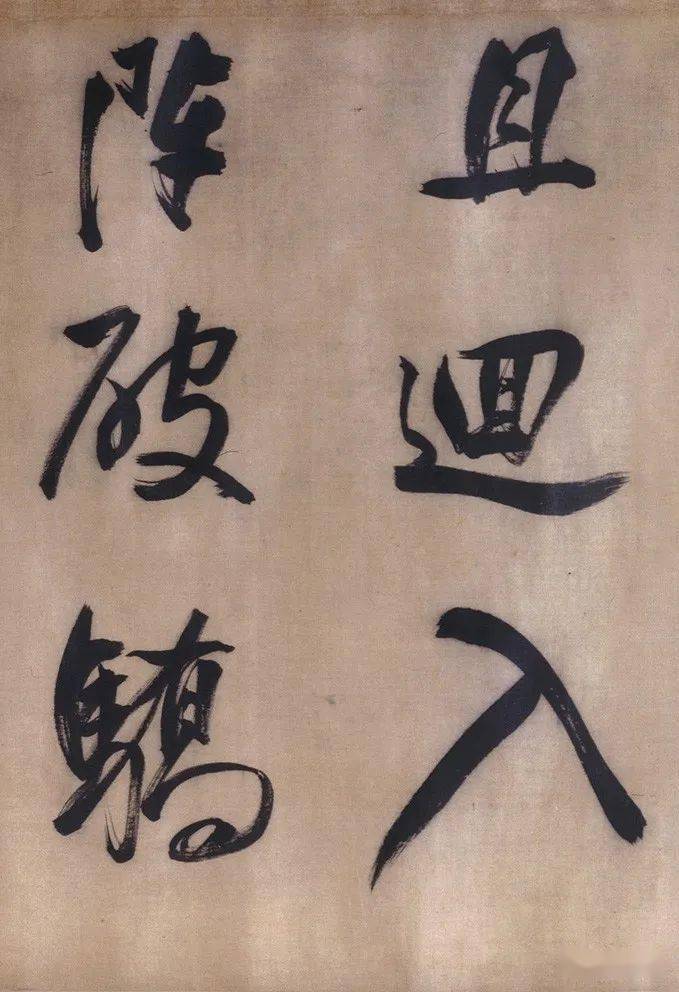 且迴入
陣破驕